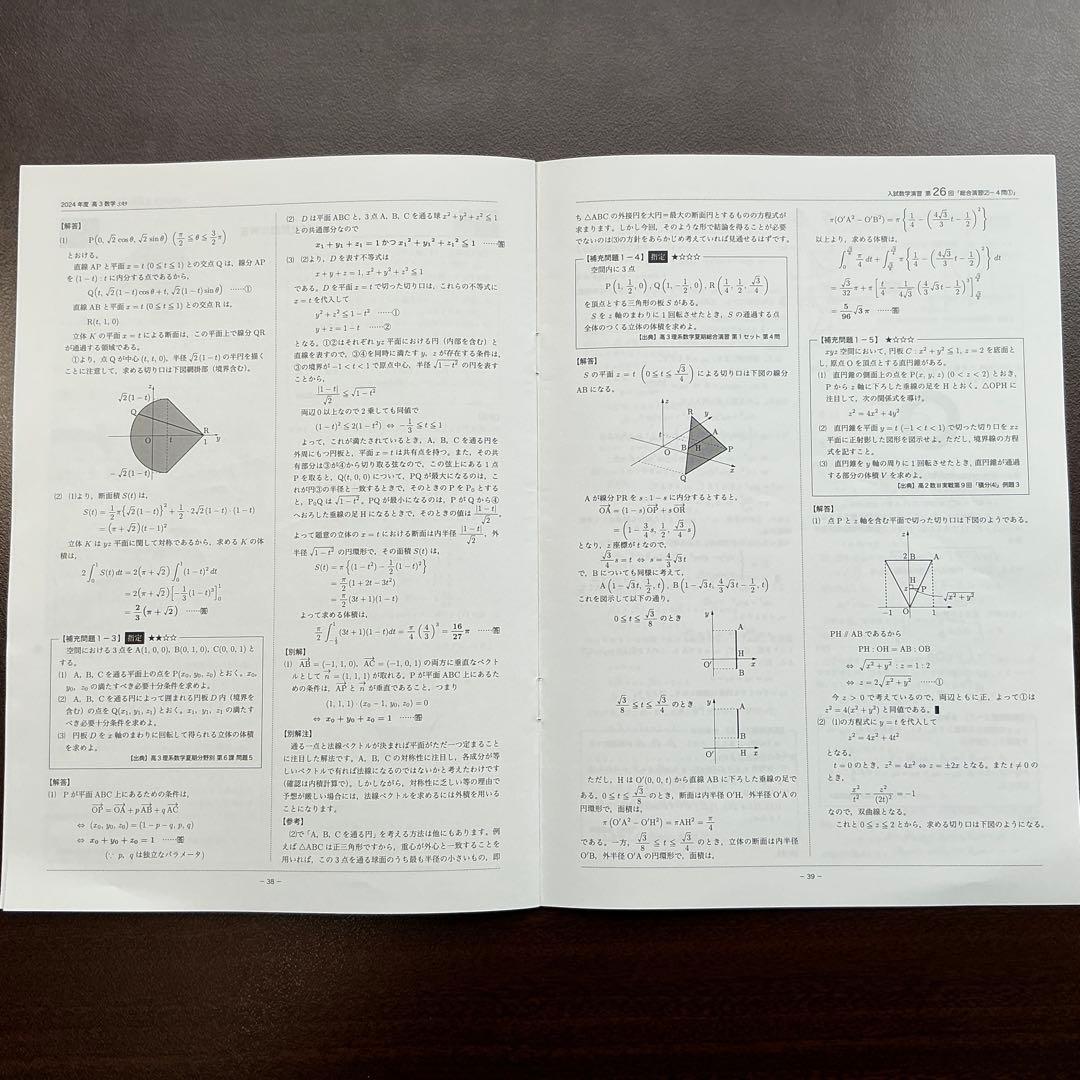 2024 年度 高3数学 SAβ
【解答】
(1) P(0, √2 cos θ, √2 sin θ) (π/2 ≦ θ ≦ 3/2 π)
とおける。
直線 AP と平面 x = t (0 ≦ t ≦ 1) との交点 Q は、線分 AP
を (1 − t) : t に内分する点であるから、
Q(t, √2(1 − t) cos θ + t, √2(1 − t) sin θ) ……①
直線 AB と平面 x = t (0 ≦ t ≦ 1) との交点 R は、
R(t, 1, 0)
立体 K の平面 x = t による断面は、この平面上で線分 QR
が通過する領域である。
①より、点 Q が中心 (t, t, 0), 半径 √2(1 − t) の半円を描く
ことに注意して、求める切り口は下図網掛部（境界含む）。
z
√2(1 − t)
Q
R
O
t
1
y
−√2(1 − t)
(2) (1)より、断面積 S(t) は、
S(t) = 1/2 π{√2(1 − t)}² + 1/2 · 2√2(1 − t) · (1 − t)
= (π + √2)(t − 1)²
立体 K は yz 平面に関して対称であるから、求める K の体
積は、
2∫₀¹ S(t) dt = 2(π + √2) ∫₀¹ (1 − t)² dt
= 2(π + √2) [−1/3 (1 − t)³]₀¹
= 2/3 (π + √2) ……答
【補充問題1−3】 指定 ★★☆☆
空間における3点を A(1, 0, 0), B(0, 1, 0), C(0, 0, 1) と
する。
(1) A, B, C を通る平面上の点を P(x₀, y₀, z₀) とおく。x₀,
y₀, z₀ の満たすべき必要十分条件を求めよ。
(2) A, B, C を通る円によって囲まれる円板 D 内（境界を
含む）の点を Q(x₁, y₁, z₁) とおく。x₁, y₁, z₁ の満たす
べき必要十分条件を求めよ。
(3) 円板 D を x 軸のまわりに回転して得られる立体の体積
を求めよ。
【出典】高3理系数学夏期分野別 第6講 問題5
【解答】
(1) P が平面 ABC 上にあるための条件は、
OP = OA + p AB + q AC
⇔ (x₀, y₀, z₀) = (1 − p − q, p, q)
⇔ x₀ + y₀ + z₀ = 1 ……答
(∵ p, q は独立なパラメータ)
(2) D は平面 ABC と、3点 A, B, C を通る球 x² + y² + z² ≦ 1
との共通部分なので
x₁ + y₁ + z₁ = 1 かつ x₁² + y₁² + z₁² ≦ 1 ……答
(3) (2)より、D を表す不等式は
x + y + z = 1, x² + y² + z² ≦ 1
である。D を平面 x = t で切った切り口は、これらの不等式に
x = t を代入して
y² + z² ≦ 1 − t² ……①
y + z = 1 − t ……②
となる。①②はそれぞれ yz 平面における円（内部を含む）と
直線を表すので、③④を同時に満たす y, z が存在する条件は、
③の境界が −1 < t < 1 で原点中心、半径 √1 − t² の円を表す
ことから、
|1 − t|/√2 ≦ √1 − t²
両辺0以上なので2乗しても同値で
(1 − t)² ≦ 2(1 − t²) ⇔ −1/3 ≦ t ≦ 1
よって、これが満たされているとき、A, B, C を通る円を
外周にもつ円板と、平面 x = t は共有点を持つ。また、その共
有部分は③が④から切り取る弦なので、この弦上にある1点
P を取ると、Q(t, 0, 0) について、PQ が最大になるのは、こ
れが円③の半径と一致するときで、そのときの P を P₀ とする
と、P₀Q は √1 − t²。PQ が最小になるのは、P が Q から④
へおろした垂線の足 H になるときで、そのときの値は |1 − t|/√2。
よって題意の立体の x = t における断面は内半径 |1 − t|/√2、外
半径 √1 − t² の円環形で、その面積 S(t) は、
S(t) = π{(1 − t²) − 1/2 (1 − t)²}
= π/2 (1 + 2t − 3t²)
= π/2 (3t + 1)(1 − t)
よって求める体積は、
π/2 ∫₋₁⁄₃¹ (3t + 1)(1 − t) dt = π/4 (4/3)³ = 16/27 π ……答
【別解】
(1) AB = (−1, 1, 0), AC = (−1, 0, 1) の両方に垂直なベクト
ルとして n = (1, 1, 1) が取れる。P が平面 ABC 上にあるた
めの条件は、AP と n が垂直であること。つまり
(1, 1, 1) · (x₀ − 1, y₀, z₀) = 0
⇔ x₀ + y₀ + z₀ = 1 ……答
【別解注】
通る一点と法線ベクトルが決まれば平面がただ一つ定まること
に注目した解法です。A, B, C の対称性に注目し、各成分が等
しいベクトルで有れば法線になるのではないかと考えたわけです
（確認は内積計算で）。しかしながら、対称性に乏しい等の理由で
予想が厳しい場合には、法線ベクトルを求めるには外積を用いる
ことになります。
【参考】
(2)で「A, B, C を通る円」を考える方法は他にもあります。例
えば △ABC は正三角形ですから、重心が外心と一致することを
用いれば、この3点を通る球面のうち最も半径の小さいもの、即
− 38 −
入試数学演習 第26回「総合演習②−4問①」
ち △ABC の外接円を大円＝最大の断面円とするものの方程式が
求まります。しかし今回、そのような形で結論を得ることが必要
でないのは(3)の方針をあらかじめ考えていれば見通せるはずです。
【補充問題1−4】 指定 ★☆☆☆
空間内に3点
P(1, 1/2, 0), Q(1, −1/2, 0), R(1/4, 1/2, √3/4)
を頂点とする三角形の板 S がある。
S を z 軸のまわりに1回転させたとき、S の通過する点
全体のつくる立体の体積を求めよ。
【出典】高3理系数学夏期総合演習 第1セット 第4問
【解答】
S の平面 z = t (0 ≦ t ≦ √3/4) による切り口は下図の線分
AB になる。
z
R
y
t
A
B
H
P
O
x
Q
A が線分 PR を s : 1 − s に内分するとすると、
OA = (1 − s)OP + sOR
= (1 − 3/4 s, 1/2, √3/4 s)
となり、z 座標が t なので、
√3/4 s = t ⇔ s = 4/3 √3t
で、B についても同様に考えて、
A(1 − √3t, 1/2, t), B(1 − √3t, 4√3/3 t − 1/2, t)
これを図示して以下の通り。
0 ≦ t ≦ √3/8 のとき
y
A
H
O′
x
B
√3/8 ≦ t ≦ √3/4 のとき
y
A
B
O′
H
x
ただし、H は O′(0, 0, t) から直線 AB に下ろした垂線の足で
ある。0 ≦ t ≦ √3/8 のとき、断面は内半径 O′H、外半径 O′A の
円環形で、面積は、
π(O′A² − O′H²) = πAH² = π/4
である。一方、√3/8 ≦ t ≦ √3/4 のとき、立体の断面は内半径
O′B、外半径 O′A の円環形で、面積は、
π(O′A² − O′B²) = π{1/4 − (4√3/3 t − 1/2)²}
以上より、求める体積は、
∫₀^(√3/8) π/4 dt + ∫_(√3/8)^(√3/4) π{1/4 − (4√3/3 t − 1/2)²} dt
= √3/32 π + π[t/4 − 1/(4√3) (4/3 √3t − 1/2)³]_(√3/8)^(√3/4)
= 5/96 √3 π ……答
【補充問題1−5】 ★☆☆☆
xyz 空間において、円板 C : x² + y² ≦ 1, z = 2 を底面と
し、原点 O を頂点とする直円錐がある。
(1) 直円錐の側面上の点を P(x, y, z) (0 < z < 2) とおき、
P から z 軸に下ろした垂線の足を H とおく。△OPH に
注目して、次の関係式を導け。
z² = 4x² + 4y²
(2) 直円錐を平面 y = t (−1 < t < 1) で切った切り口を xz
平面に正射影した図形を図示せよ。ただし、境界線の方程
式を記すこと。
(3) 直円錐を y 軸の周りに1回転させたとき、直円錐が通過
する部分の体積 V を求めよ。
【出典】高2数Ⅲ実戦第9回「積分(4)」例題3
【解答】
(1) 点 P と z 軸を含む平面で切った切り口は下図のようである。
z
2
B
A
H
z
P
√x² + y²
−1
O
1
PH // AB であるから
PH : OH = AB : OB
⇔ √x² + y² : z = 1 : 2
⇔ z = 2√x² + y² ……①
今 z > 0 で考えているので、両辺ともに正、よって①は
z² = 4(x² + y²) と同値である。
(2) (1)の方程式に y = t を代入して
z² = 4x² + 4t²
となる。
t = 0 のとき、z² = 4x² ⇔ z = ±2x となる。また t ≠ 0 の
とき、
x²/t² − z²/(2t)² = −1
なので、双曲線となる。
これと 0 ≦ z ≦ 2 とから、求める切り口は下図のようになる。
− 39 −